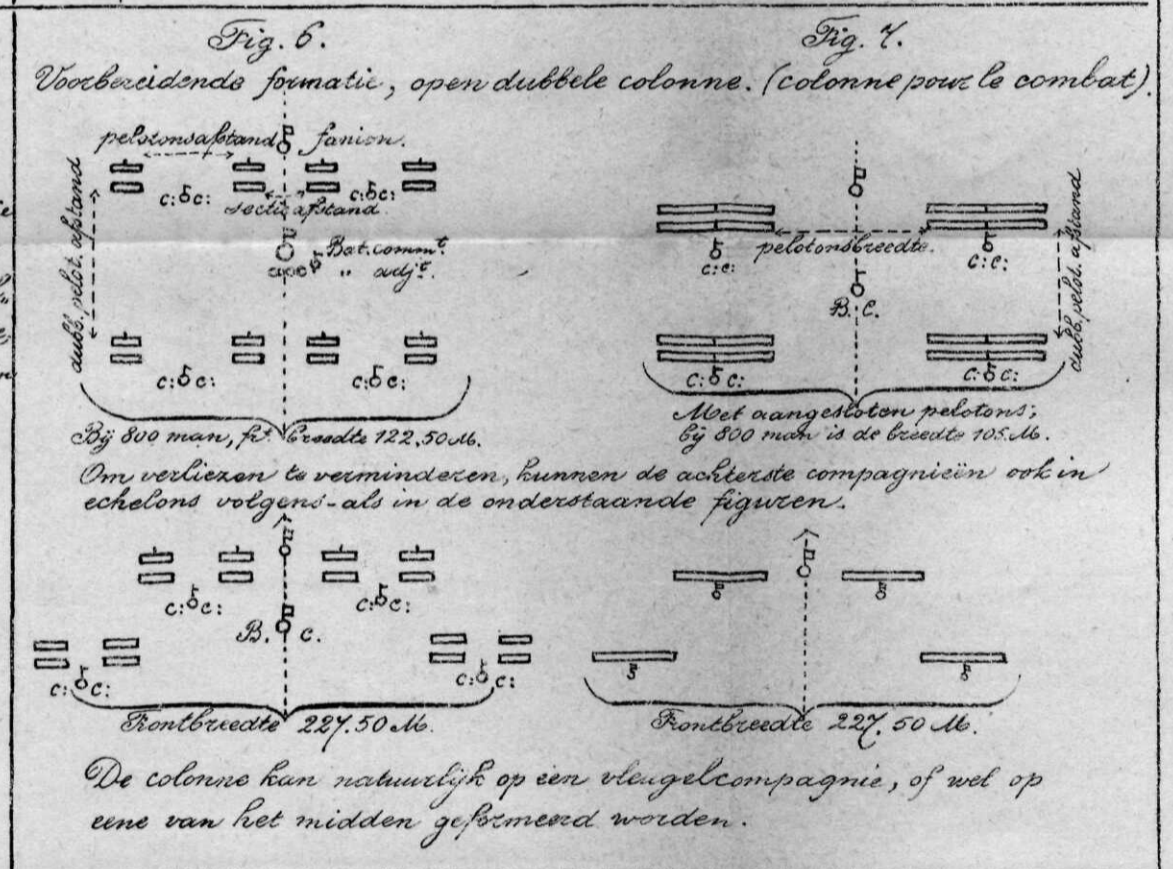 Fig. 6.
Fig. 7.
Voorbereidende formatie, open dubbele colonne. (colonne pour le combat).
pelotonsafstand
fanion.
dubb. pelot. afstand
c: c:
c: c:
sectieafstand
Bat. commt.
" adjt.
c: c:
c: c:
Bij 800 man, fr. breedte 122.50 M.
pelotonsbreedte.
c: c:
c: c:
dubb. pelot. afstand
B. C.
c: c:
c: c:
Met aangesloten pelotons;
bij 800 man is de breedte 105 M.
Om verliezen te verminderen, kunnen de achterste compagnieën ook in
echelons volgens-als in de onderstaande figuren.
c: c:
c: c:
B. C.
c: c:
c: c:
Frontbreedte 227.50 M.
Frontbreedte 227.50 M.
De colonne kan natuurlijk op een vleugelcompagnie, of wel op
eene van het midden geformeerd worden.